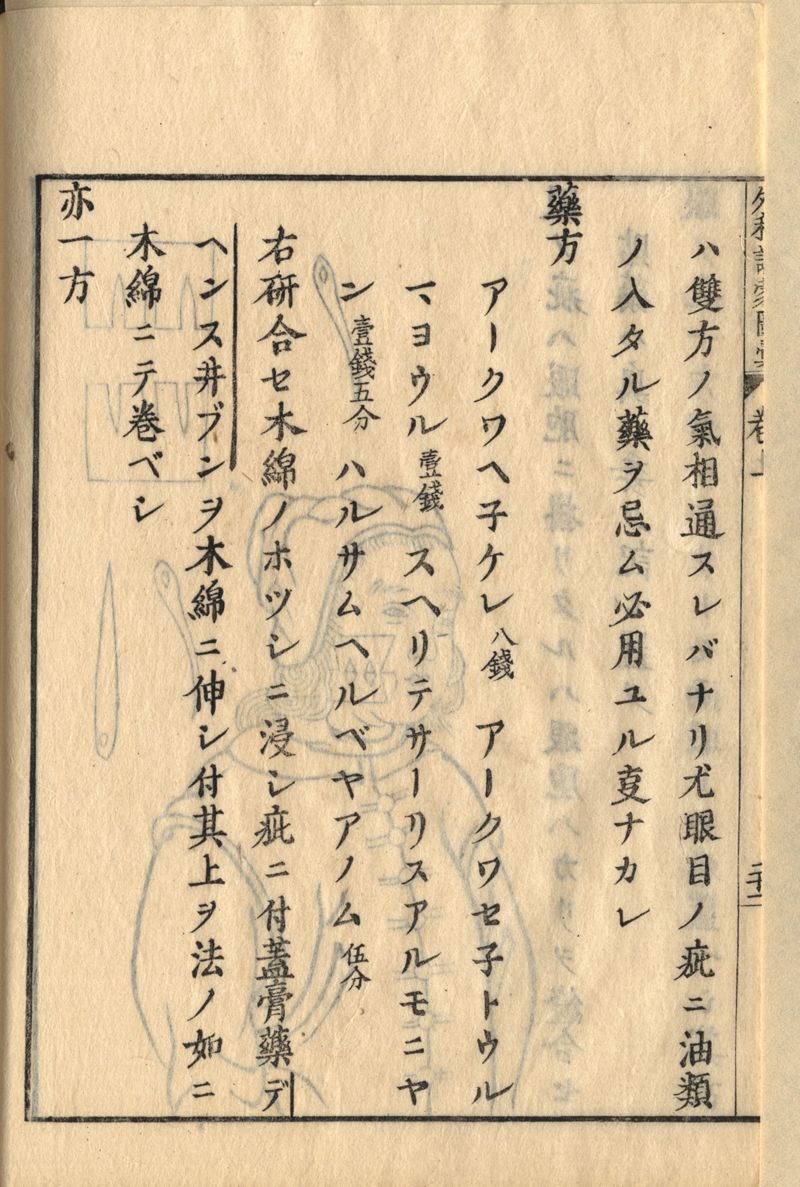 ハ雙方ノ氣相通スレバナリ尤眼目ノ疵ニ油類
ノ入タル藥ヲ忌ム必用ユル叓ナカレ
藥方
アークワヘ子ケレ八錢 アークワセ子トウル
マヨウル壹錢 スヘリテサーリスアルモニヤ
ン壹錢五分 ハルサムヘルベヤアノム伍分
右研合セ木綿ノホツシニ浸シ疵ニ付蓋膏藥デ
ヘンス井ブンヲ木綿ニ伸シ付其上ヲ法ノ如ニ
木綿ニテ巻ベシ
亦一方